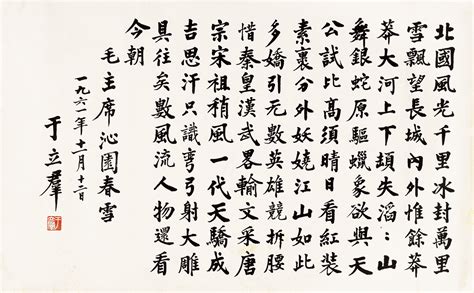 北國風光千里冰封萬里
雪飄望長城內外惟餘莽
莽大河上下頓失滔〻山
舞銀蛇原驅蠟象欲與天
公試比高須晴日看紅裝
素裹分外妖嬈江山如此
多嬌引無數英雄競折腰
惜秦皇漢武畧輸文采唐
宗宋祖稍風一代天驕成
吉思汗只識彎弓射大雕
具往矣數風流人物還看
今朝
毛主席沁園春雪
一九六一年十一月十二日
于立羣